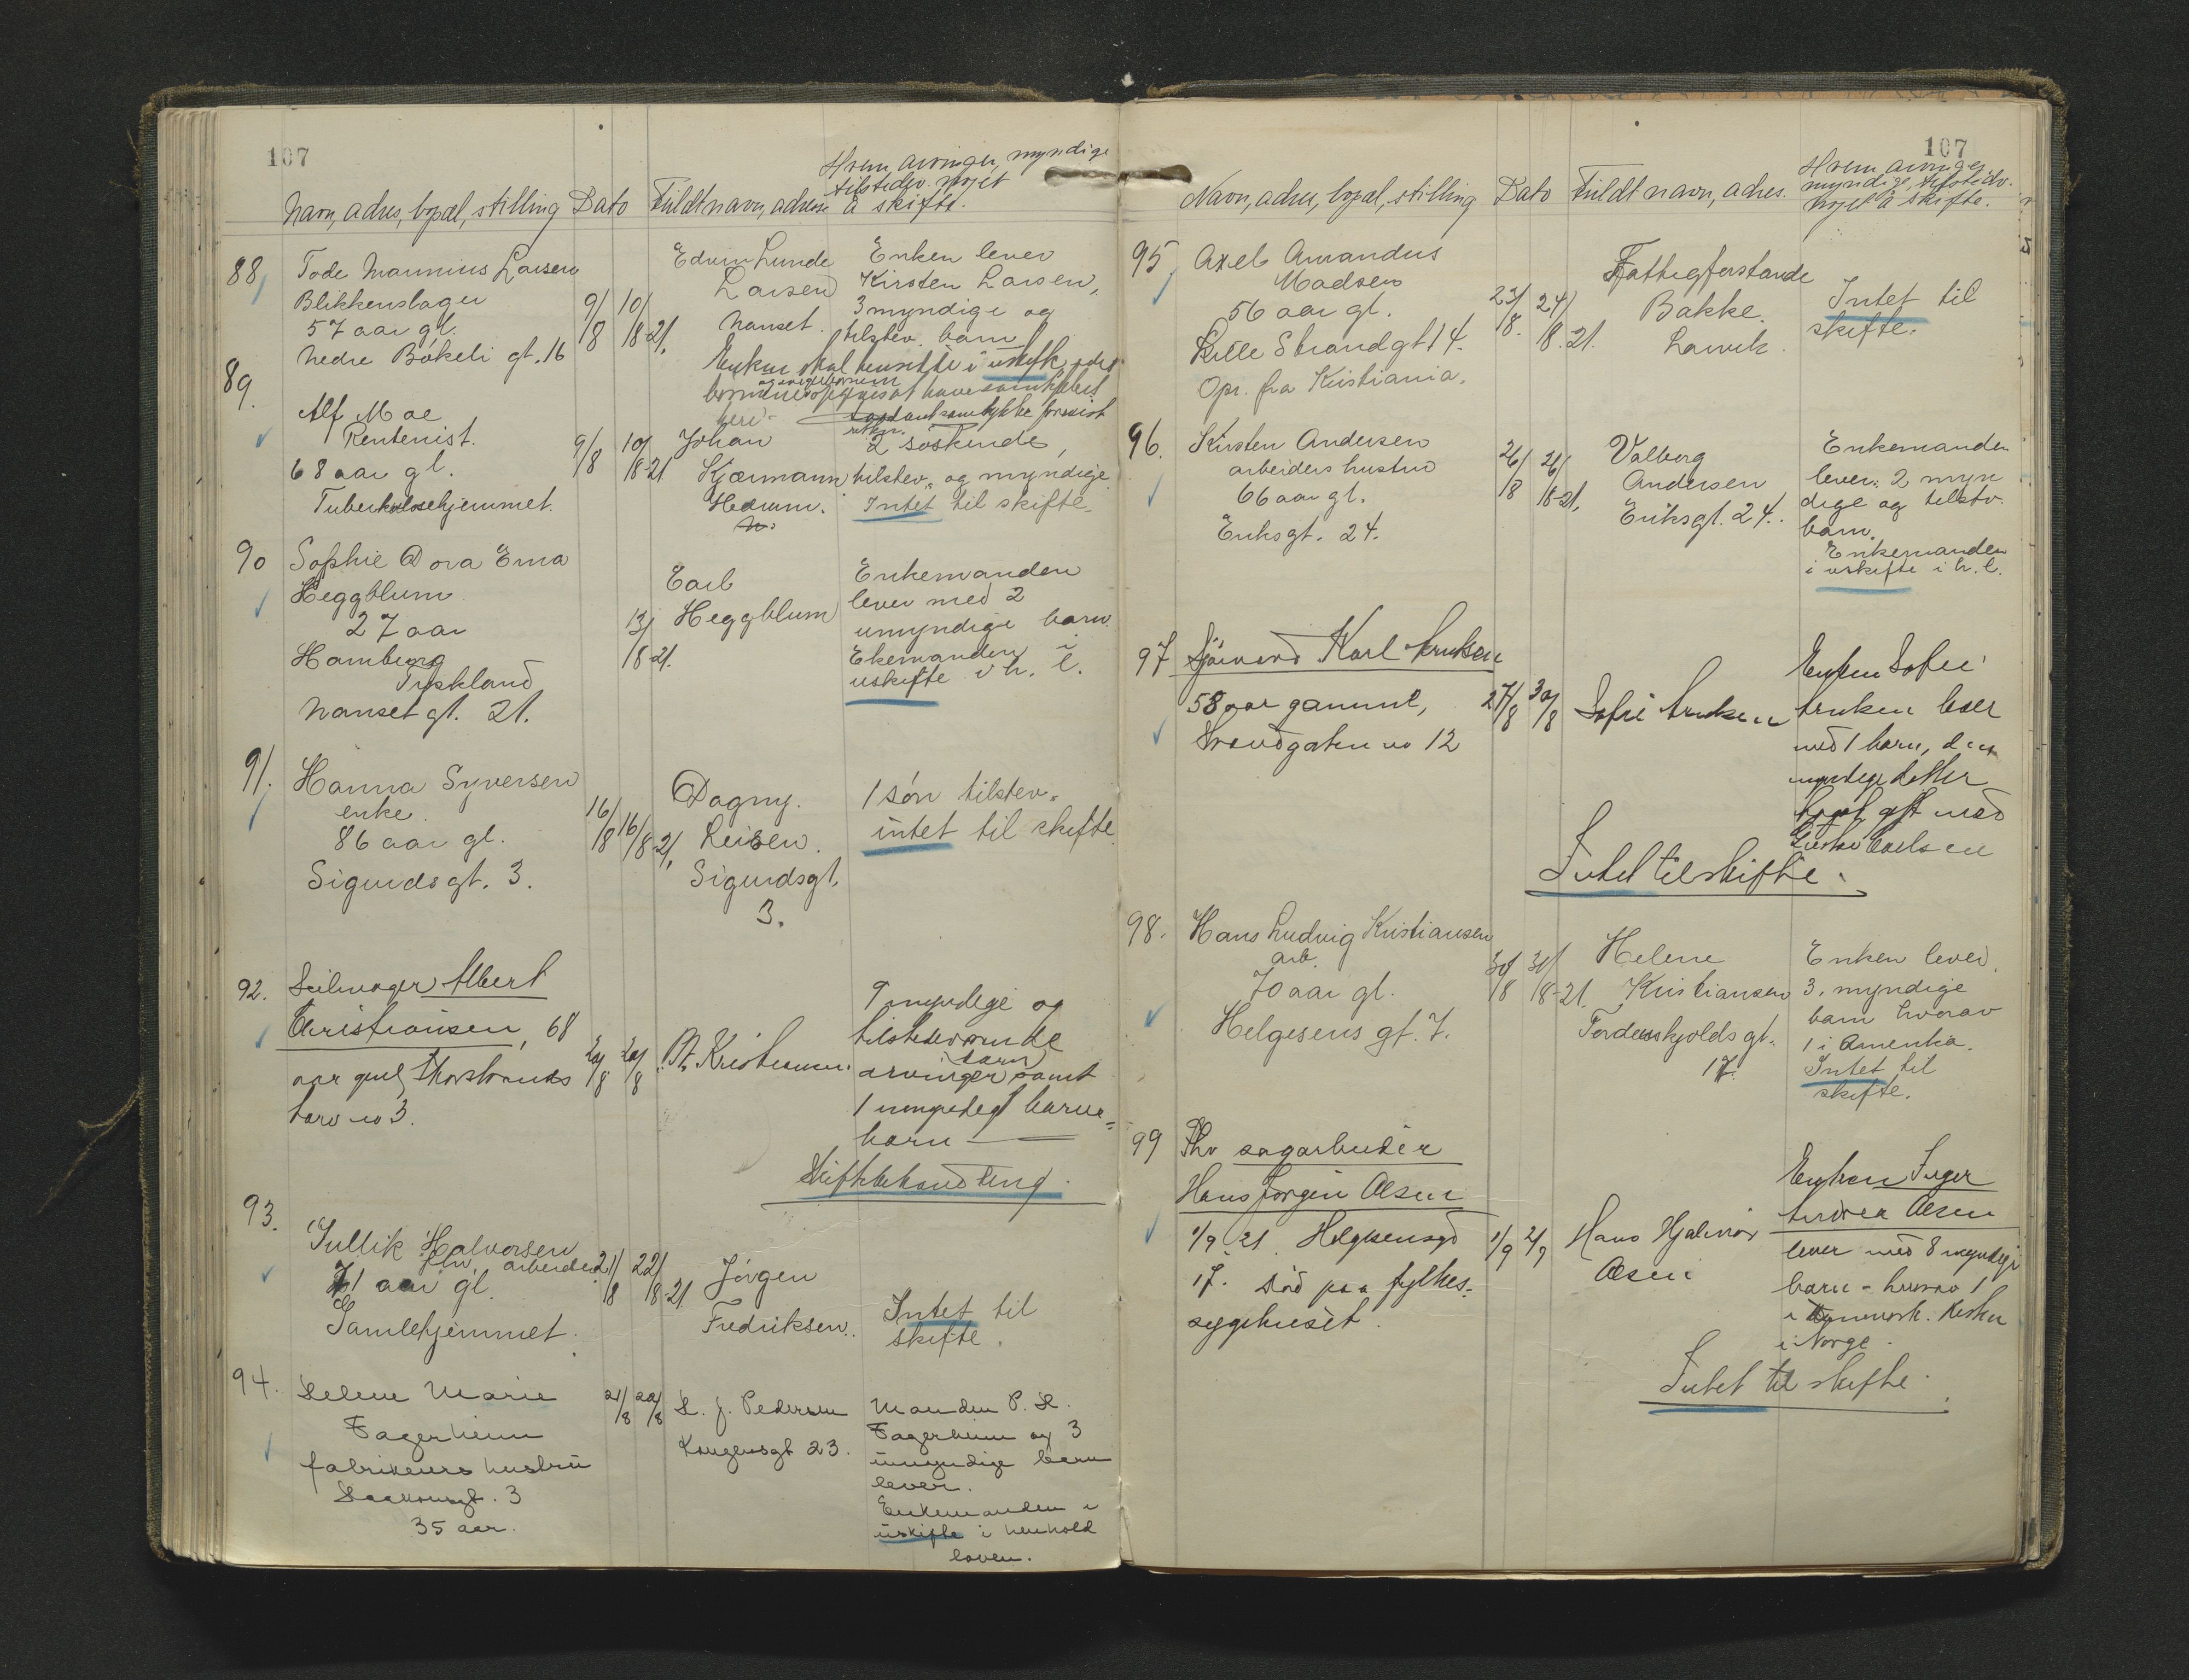 107
Navn, adres, bopæl, stilling Dato Fuldt navn, adresse
Hvem arvinger, myndige
tilstedev. noget
å skifte.
88, Tode Marinius Larsen
Blikkenslager
57 aar gl.
Nedre Bøkeli gt. 16
9/8 10/8-21.
Edvin Lunde
Larsen
Nanset.
Enken lever
Kirsten Larsen,
3 myndige og
tilstev. barn
Enken skal hensitte i uskifte,
89.
Alf Moe
Rentenist.
68 aar gl.
Tuberkulosehjemmet.
9/8 10/8-21
Johan
Kjærmann
Hedrum.
2 søskende,
tilstev. og myndige
Intet til skifte.
90 Sophie Dora Erna
Heggblum
27 aar
Hamburg
Tyskland
Nanset gt. 21.
13/8-21.
Carl
Heggblum
Enkemanden
lever med 2
umyndige barn.
Ekemanden i
uskifte i h. l.
91. Hanna Syversen
enke.
86 aar gl.
Sigurdsgt. 3.
16/8 16/8-21,
Dagny.
Leisen.
Sigurdsgt.
3.
1 søn tilstev.
intet til skifte.
92. Seilmager Albert
Christiansen, 68
aar gml, Thorstrands
torv no 3.
20/8 20/8
A. Kristiansen.
9 myndige og
tilstedeværende
barn
arvinger samt
1 umyndigt barne=
barn
Skiftebehandling.
93.
Tullik Halvorsen
fhv. arbeider
71 aar gl.
Gamlehjemmet.
21/8 22/8-21
Jørgen
Fredriksen.
Intet til
skifte.
94. Helene Marie
Fagerheim
fabrikeiers hustru
Haakonsgt. 3
35 aar.
21/8 22/8
H. J. Pedersen
Kongensgt 23.
Manden P. H.
Fagerheim og 3
umyndige barn
lever.
Enkemanden i
uskifte i henhold
loven.
107
Navn, adres, bopæl, stilling Dato Fuldt navn, adres.
Hvem arvinger
myndige, tilstedv.
noget å skifte.
95, Axel Amandus
Madsen
56 aar gl.
Lille Strandgt 14.
Opr. fra Kristiania.
23/8. 24/8.21.
Fattigforstander
Bakke.
Larvik.
Intet til
skifte.
96. Kirsten Andersen
arbeiders hustru
66 aar gl.
Eriksgt. 24.
26/8 26/8-21,
Valborg
Andersen
Eriksgt. 24.
Enkemanden
lever. 2 myn
dige og tilstv.
barn.
Enkemanden
i uskifte i h. l.
97 Sjømand Karl
58 aar gammel,
Strandgaten no 12
27/8 30/8
Sofie
Enken Sofie
lever
med 1 barn, den
myndige datter
gift med
Carlsen
Intet til skifte.
98. Hans Ludvig Kristiansen
arb.
70 aar gl.
Helgesens gt. 7.
30/8 30/8-21.
Helene
Kristiansen
Tordenskjolds gt.
17.
Enken lever,
3. myndige
barn hvorav
1 i Amerika.
Intet til
skifte.
99 Fhv sagarbeider
Hans Jørgen Olsen
1/9 21. Helgesensgd
17. død paa fylkes-
sygehuset.
1/9 2/9
Hans Hjalmar
Olsen
Enken Inger
Andrea Olsen
lever med 8 myndige
barn - hvorav 1
i Danmark. Resten
i Norge.
Intet til skifte.